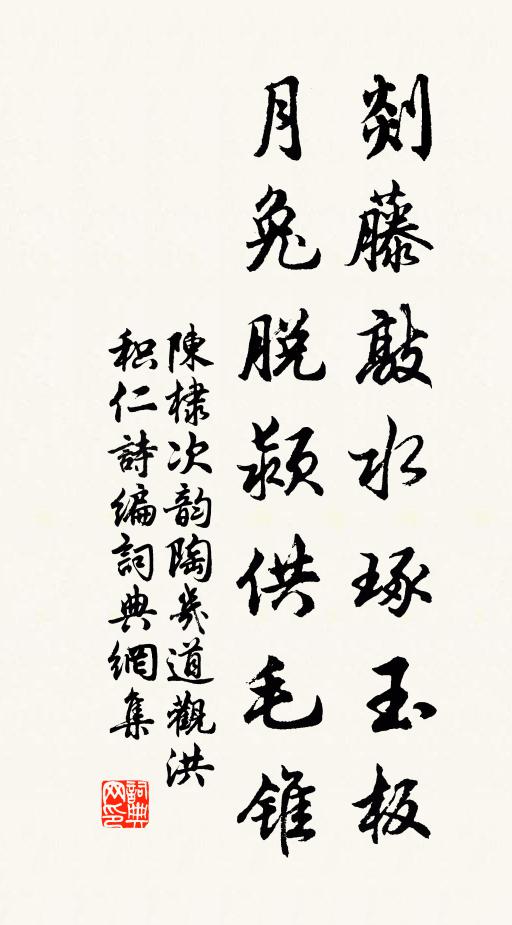 剡藤敲水琢玉板
月兔脱颖供毛锥
陳棣次韵陶㡬道觀洪
积仁詩编詞典網集
詞典网印